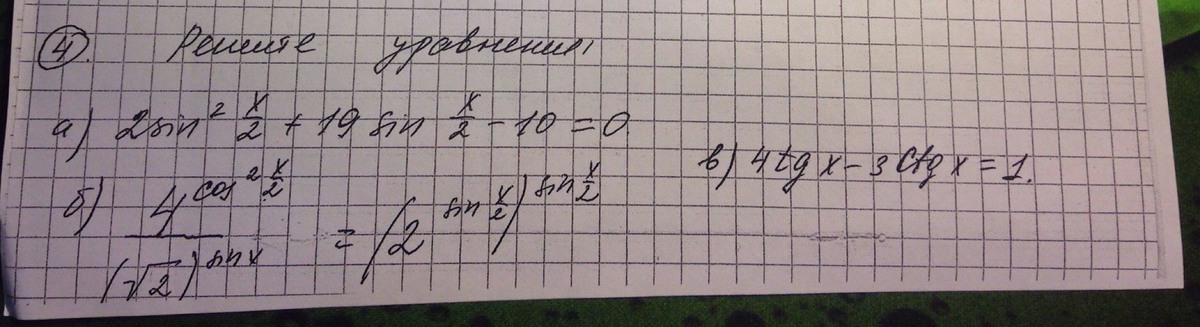 4. Решите уравнения
а) 2sin² x/2 + 19 sin x/2 - 10 = 0
б) 4^(cos² x/2) / (√2)^(sin x) = (2^(sin x/2))^(sin x/2)
в) 4tg x - 3ctg x = 1.